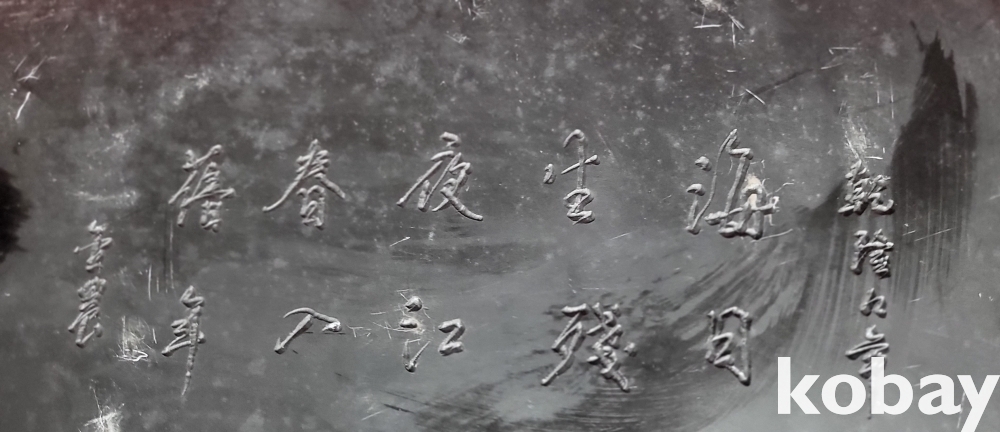 乾隆
海日
生殘
夜江
春入
舊年
農